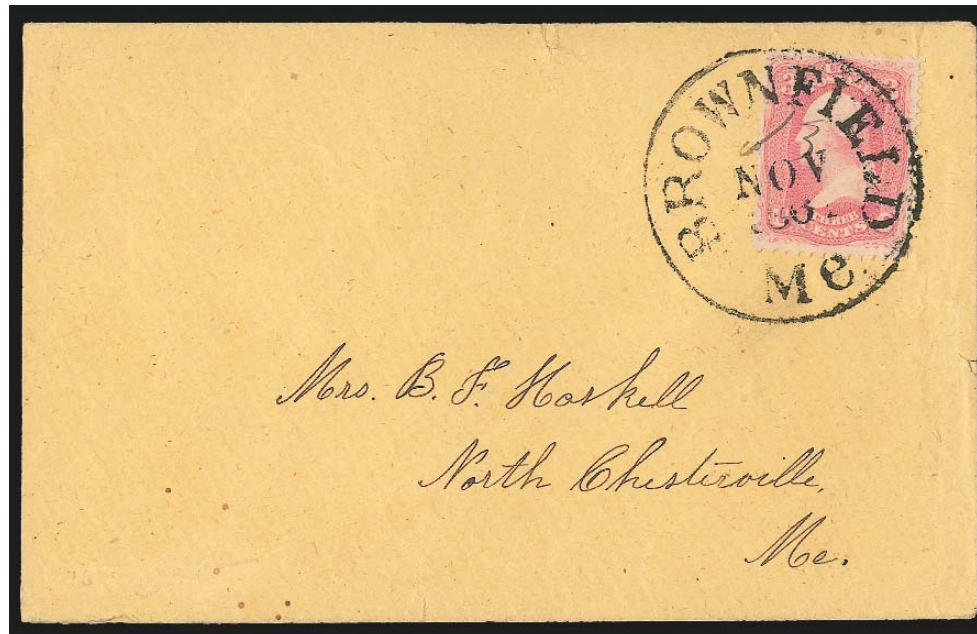 BROWNFIELD
NOV
Me.
CENTS
Mrs. B. F. Haskell
North Chesterville,
Me.